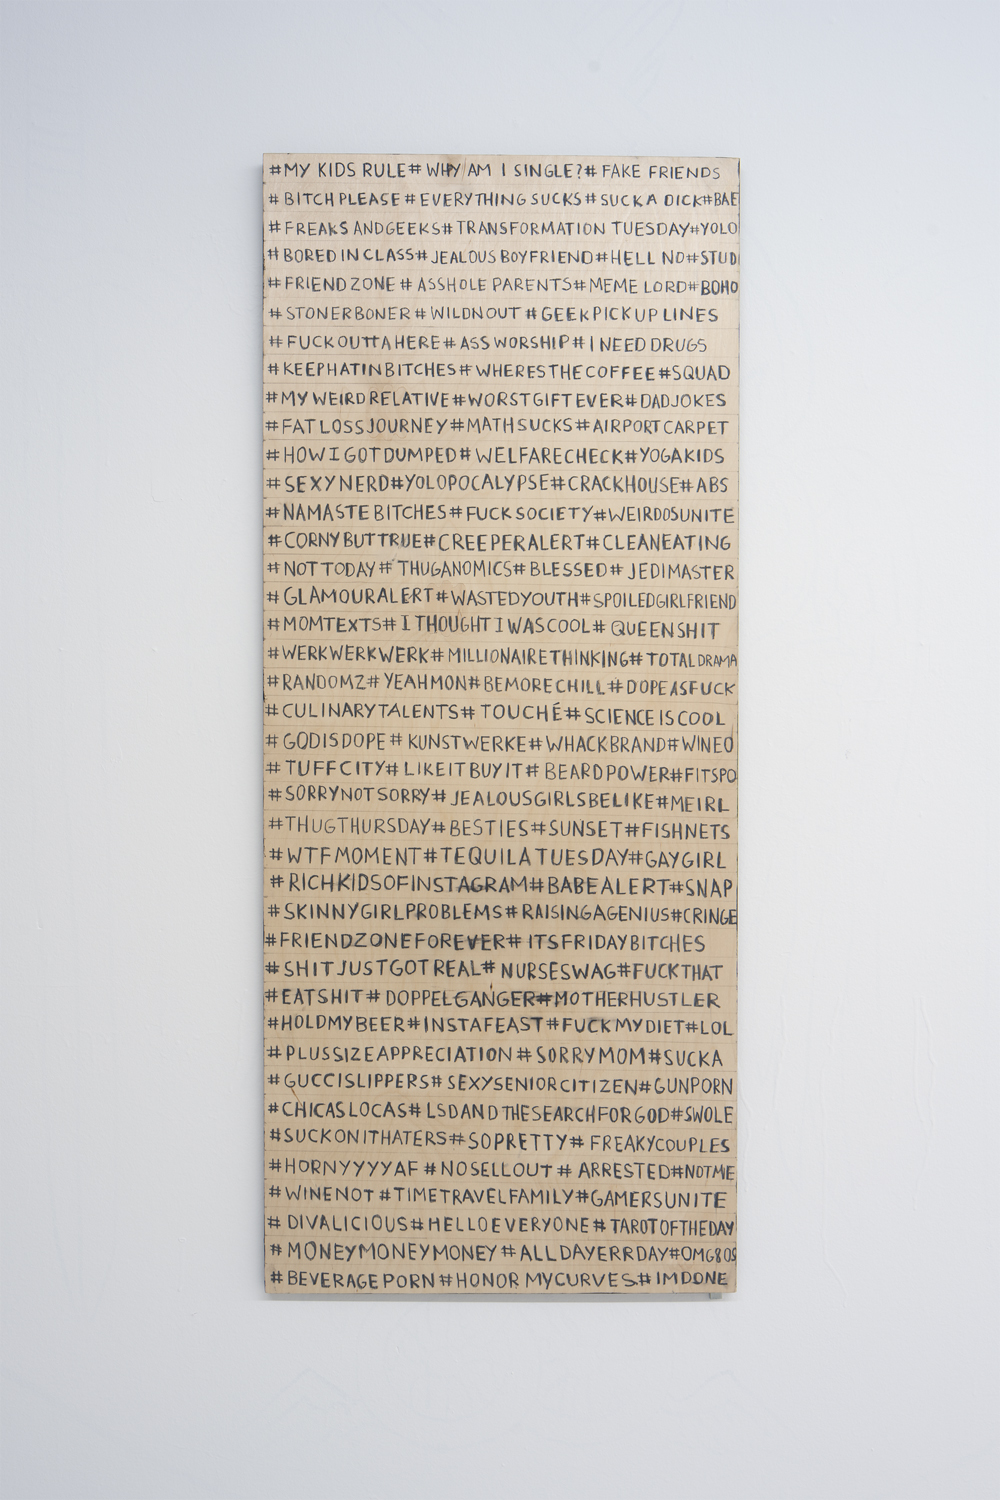 #MY KIDS RULE# WHY AM I SINGLE?# FAKE FRIENDS
# BITCH PLEASE # EVERYTHING SUCKS # SUCK A DICK#BAE
# FREAKS ANDGEEKS# TRANSFORMATION TUESDAY#YOLO
# BORED IN CLASS# JEALOUS BOYFRIEND#HELL NO#STUD
# FRIEND ZONE # ASSHOLE PARENTS# MEME LORD#BOHO
# STONER BONER # WILDNOUT # GEEK PICK UP LINES
# FUCK OUTTA HERE# ASS WORSHIP# I NEED DRUGS
#KEEPHATINBITCHES# WHERESTHECOFFEE #SQUAD
#MY WEIRD RELATIVE#WORST GIFT EVER# DADJOKES
#FAT LOSS JOURNEY#MATHSUCKS#AIRPORT CARPET
#HOW I GOT DUMPED# WELFARECHECK#YOGAKIDS
#SEXY NERD#YOLOPOCALYPSE#CRACKHOUSE#ABS
#NAMASTE BITCHES#FUCK SOCIETY#WEIRDOSUNITE
#CORNY BUT TRUE#CREEPERALERT#CLEANEATING
#NOT TODAY# THUGANOMICS# BLESSED# JEDIMASTER
#GLAMOURALERT#WASTEDYOUTH#SPOILEDGIRLFRIEND
#MOMTEXTS# I THOUGHT I WAS COOL# QUEENSHIT
#WERKWERKWERK# MILLIONAIRETHINKING# TOTALDRAMA
#RANDOMZ# YEAHMON#BEMORECHILL#DOPEASFUCK
#CULINARYTALENTS# TOUCHÉ# SCIENCE IS COOL
# GODISDOPE # KUNSTWERKE#WHACKBRAND#WINEO
# TUFFCITY# LIKEITBUYIT# BEARDPOWER#FITSPO
#SORRYNOTSORRY# JEALOUSGIRLSBELIKE#MEIRL
#THUGTHURSDAY# BESTIES#SUNSET#FISHNETS
#WTFMOMENT#TEQUILATUESDAY#GAYGIRL
# RICHKIDSOFINSTAGRAM#BABEALERT#SNAP
# SKINNYGIRLPROBLEMS#RAISINGAGENIUS#CRINGE
#FRIENDZONEFOREVER# ITSFRIDAYBITCHES
#SHITJUSTGOTREAL# NURSESWAG#FUCKTHAT
#EATSHIT# DOPPELGANGER#MOTHERHUSTLER
#HOLDMYBEER#INSTAFEAST#FUCKMYDIET#LOL
#PLUSSIZEAPPRECIATION #SORRYMOM#SUCKA
#GUCCISLIPPERS# SEXYSENIORCITIZEN#GUNPORN
#CHICASLOCAS# LSDANDTHESEARCHFORGOD#SWOLE
#SUCKONITHATERS#SOPRETTY# FREAKYCOUPLES
#HORNYYYYAF #NOSELLOUT# ARRESTED#NOTME
#WINENOT #TIMETRAVELFAMILY#GAMERSUNITE
# DIVALICIOUS#HELLOEVERYONE# TAROTOFTHEDAY
# MONEYMONEYMONEY #ALLDAYERRDAY#OMG80S
# BEVERAGE PORN #HONOR MYCURVES# IMDONE